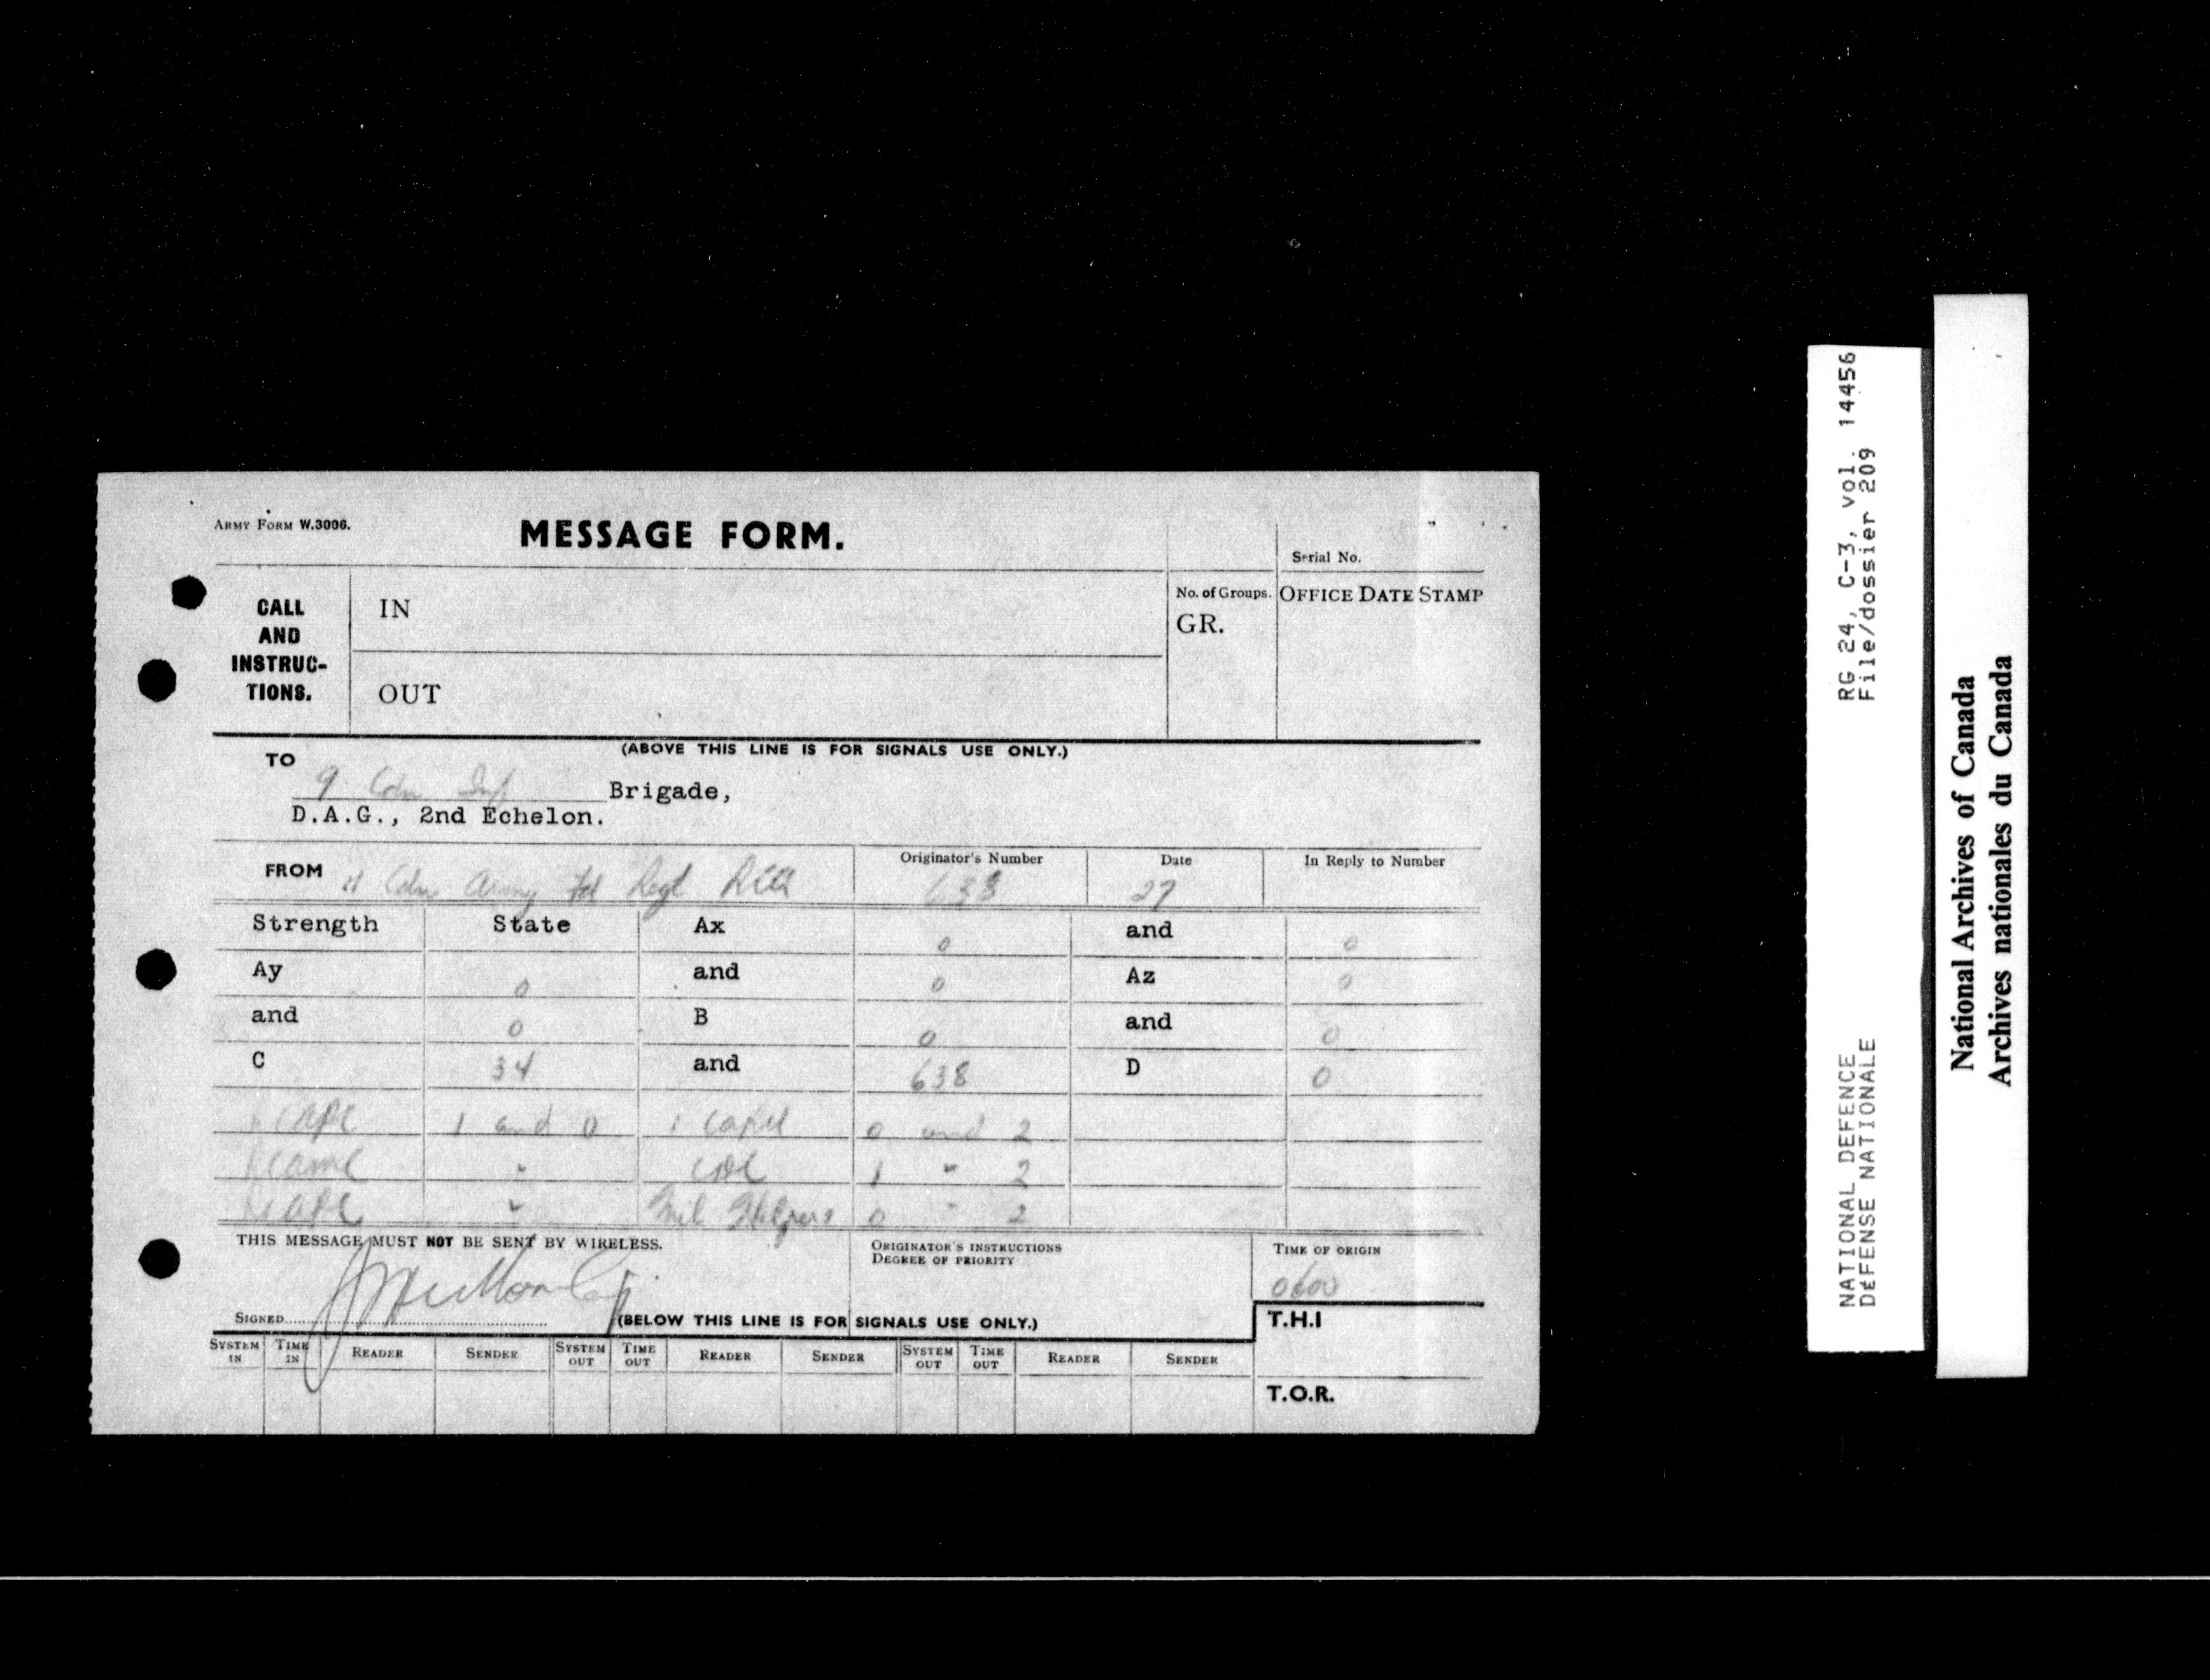 ARMY FORM W.3006.
MESSAGE FORM.
Serial No.
CALL AND INSTRUC- TIONS.
IN
No. of Groups. GR.
OFFICE DATE STAMP
OUT
(ABOVE THIS LINE IS FOR SIGNALS USE ONLY.)
TO
9 Cdn Inf Brigade,
D.A.G., 2nd Echelon.
FROM 11 Cdn Army Fd Regt RCA
Originator's Number 638
Date 27
In Reply to Number
Strength State Ax 0 and 0
Ay 0 and 0 Az 0
and 0 B 0 and 0
C 34 and 638 D 0
1 and 0 0 and 2
" CDC 1 " 2
" 0 " 2
THIS MESSAGE MUST NOT BE SENT BY WIRELESS.
ORIGINATOR'S INSTRUCTIONS
DEGREE OF PRIORITY
TIME OF ORIGIN
0600
SIGNED
(BELOW THIS LINE IS FOR SIGNALS USE ONLY.)
T.H.I
SYSTEM IN TIME IN READER SENDER SYSTEM OUT TIME OUT READER SENDER SYSTEM OUT TIME OUT READER SENDER
T.O.R.
RG 24, C-3, vol. 14456
File/dossier 209
NATIONAL DEFENCE
DÉFENSE NATIONALE
National Archives of Canada
Archives nationales du Canada